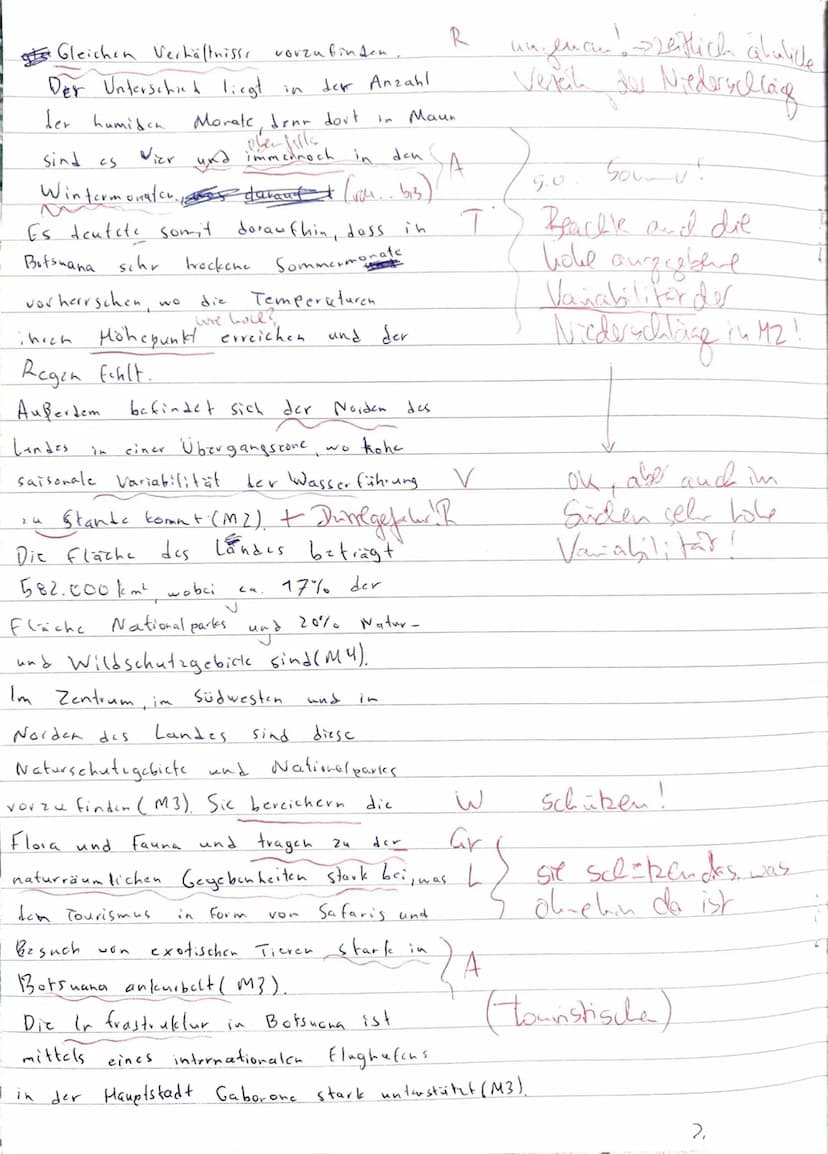 Gleichen Verhältnisse vorzufinden. R ungenau! → zeitlich ähnliche
Der Unterschied liegt in der Anzahl Verteil. der Niederschläge
der humiden Monate, denn dort in Maun
ebenfalls
sind es vier und immernoch in den A s.o. Sommer!
Wintermonaten (von .. bis)
Es deutete somit daraufhin, dass in T Beachte auch die
Botsuana sehr trockene Sommermonate hohe angegebene
vorherrschen, wo die Temperaturen Variabilität der
wie hoch?
ihren Höhepunkt erreichen und der Niederschläge in M2!
Regen fehlt.
Außerdem befindet sich der Norden des
Landes in einer Übergangszone, wo hohe
saisonale Variabilität der Wasserführung V ok, aber auch im
zu Stande kommt (M2). + Dürregefahr! R Süden sehr hohe
Die Fläche des Landes beträgt Variabilität!
582.000 km², wobei ca. 17% der
Fläche Nationalparks und 20% Natur-
und Wildschutzgebiete sind (M4).
Im Zentrum, im Südwesten und in
Norden des Landes sind diese
Naturschutzgebiete und Nationalparks
vorzufinden (M3). Sie bereichern die W schützen!
Flora und Fauna und tragen zu der Gr
naturräumlichen Gegebenheiten stark bei, was L sie schützen das, was
dem Tourismus in Form von Safaris und ohnehin da ist
Besuch von exotischen Tieren stark in
Botsuana ankurbelt (M3). A
Die Infrastruktur in Botsuana ist (touristische)
mittels eines internationalen Flughafens
in der Hauptstadt Gaborone stark unterstützt (M3).
2.